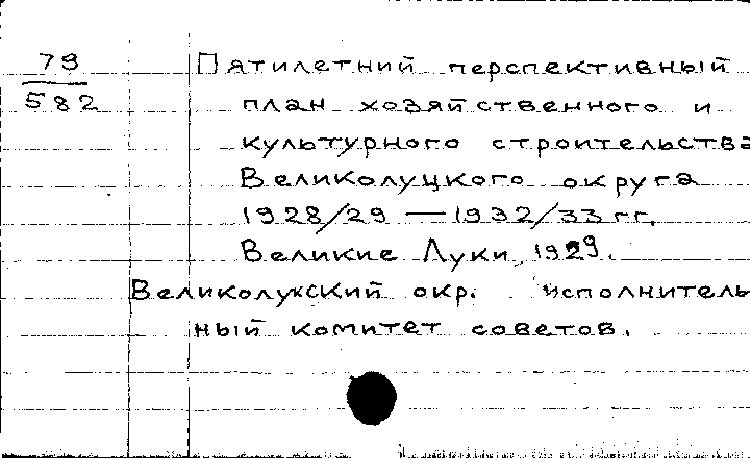 79
582
Пятилетний перспективный
план хозяйственного и
культурного строительства
Великолуцкого округа
1928/29 — 1932/33 гг.
Великие Луки, 1929.
Великолукский окр. исполнитель
ный комитет советов.